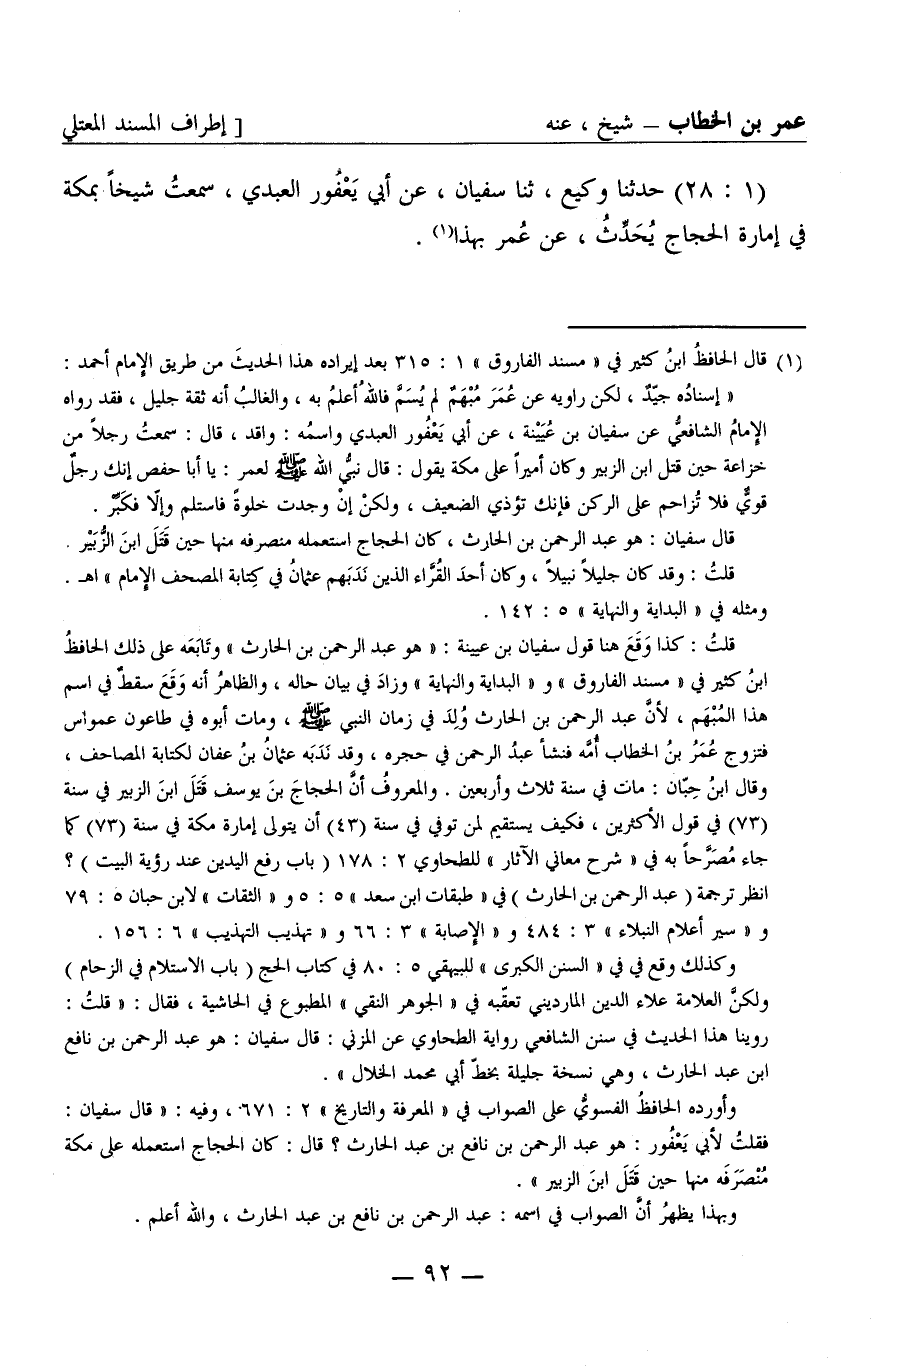 عمر بن الخطاب – شيخ ، عنه [ إطراف المسند المعتلي
(١ : ٢٨) حدثنا وكيع ، ثنا سفيان ، عن أبي يَعْفُور العبدي ، سمعتُ شيخاً بمكة
في إمارة الحجاج يُحَدِّثُ ، عن عُمر بهذا(١) .
(١) قال الحافظُ ابنُ كثير في « مسند الفاروق » ١ : ٣١٥ بعد إيراده هذا الحديثَ من طريق الإمام أحمد :
« إسنادُه جيّدٌ ، لكن راويه عن عُمَرَ مُبْهَمٌ لم يُسَمَّ فاللهُ أعلمُ به ، والغالبُ أنه ثقة جليل ، فقد رواه
الإمامُ الشافعيُّ عن سفيان بن عُيَيْنة ، عن أبي يَعْفُور العبدي واسمُه : واقد ، قال : سمعتُ رجلاً من
خزاعة حين قتل ابن الزبير وكان أميراً على مكة يقول : قال نبيُّ الله ﷺ لعمر : يا أبا حفص إنك رجلٌ
قويٌّ فلا تُزاحم على الركن فإنك تؤذي الضعيف ، ولكنْ إنْ وجدت خلوةً فاستلم وإلّا فكَبِّر .
قال سفيان : هو عبد الرحمن بن الحارث ، كان الحجاج استعمله منصرفه منها حين قَتَلَ ابنَ الزُّبَيْر .
قلتُ : وقد كان جليلاً نبيلاً ، وكان أحدَ القُرَّاء الذين نَدَبَهم عثمانُ في كِتابة المصحف الإمام » اهـ .
ومثله في « البداية والنهاية » ٥ : ١٤٢ .
قلتُ : كذا وَقَعَ هنا قول سفيان بن عيينة : « هو عبد الرحمن بن الحارث » وتَابَعَه على ذلك الحافظُ
ابنُ كثير في « مسند الفاروق » و « البداية والنهاية » وزادَ في بيان حاله ، والظاهرُ أنه وَقَعَ سقطٌ في اسم
هذا المُبْهَم ، لأنَّ عبد الرحمن بن الحارث وُلِدَ في زمان النبي ﷺ ، ومات أبوه في طاعون عمواس
فتزوج عُمَرُ بنُ الخطاب أُمَّه فنشأ عبدُ الرحمن في حجره ، وقد نَدَبَه عثمانُ بنُ عفان لكتابة المصاحف ،
وقال ابنُ حِبّان : مات في سنة ثلاث وأربعين . والمعروفُ أنَّ الحجاجَ بنَ يوسف قَتَلَ ابنَ الزبير في سنة
(٧٣) في قول الأكثرين ، فكيف يستقيم لمن توفي في سنة (٤٣) أن يتولى إمارة مكة في سنة (٧٣) كما
جاء مُصَرَّحاً به في « شرح معاني الآثار » للطحاوي ٢ : ١٧٨ ( باب رفع اليدين عند رؤية البيت ) ؟
انظر ترجمة ( عبد الرحمن بن الحارث ) في « طبقات ابن سعد » ٥ : ٥ و « الثقات » لابن حبان ٥ : ٧٩
و « سير أعلام النبلاء » ٣ : ٤٨٤ و « الإصابة » ٣ : ٦٦ و « تهذيب التهذيب » ٦ : ١٥٦ .
وكذلك وقع في في « السنن الكبرى » للبيهقي ٥ : ٨٠ في كتاب الحج ( باب الاستلام في الزحام )
ولكنَّ العلامة علاء الدين المارديني تعقّبه في « الجوهر النقي » المطبوع في الحاشية ، فقال : « قلتُ :
روينا هذا الحديث في سنن الشافعي رواية الطحاوي عن المزني : قال سفيان : هو عبد الرحمن بن نافع
ابن عبد الحارث ، وهي نسخة جليلة بخطّ أبي محمد الخلال » .
وأورده الحافظُ الفسويُّ على الصواب في « المعرفة والتاريخ » ٢ : ٦٧١ ، وفيه : « قال سفيان :
فقلتُ لأبي يَعْفُور : هو عبد الرحمن بن نافع بن عبد الحارث ؟ قال : كان الحجاج استعمله على مكة
مُنْصَرَفَه منها حين قَتَلَ ابنَ الزبير » .
وبهذا يظهرُ أنَّ الصواب في اسمه : عبد الرحمن بن نافع بن عبد الحارث ، والله أعلم .
— ٩٢ —